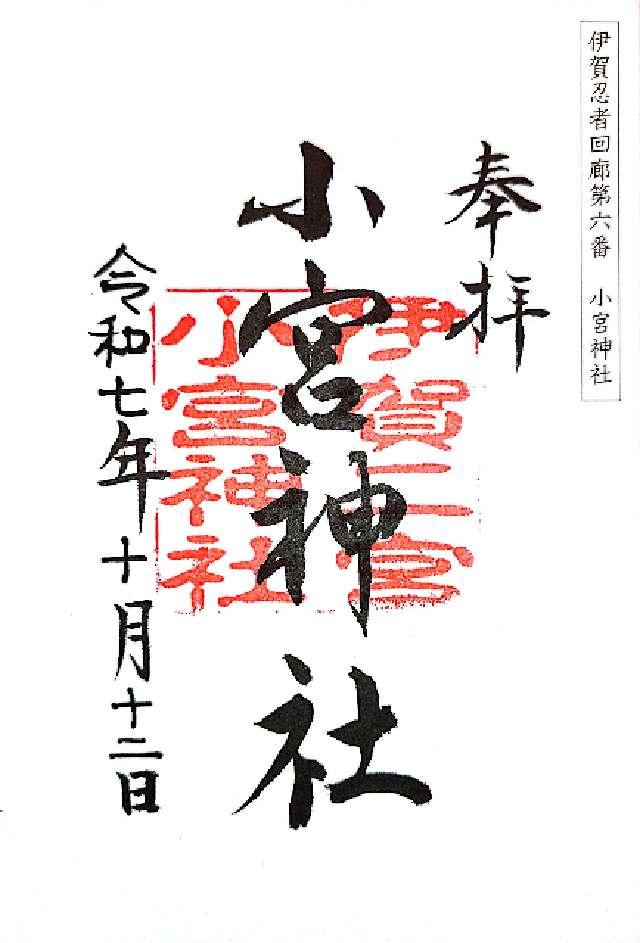 伊賀忍者回廊第六番 小宮神社
奉拝
小宮神社
伊賀二宮
小宮神社
令和七年十月十二日